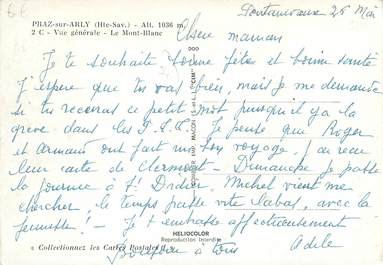 6€
PRAZ-sur-ARLY (Hte-Sav.) - Alt. 1036 m.
2 C - Vue générale - Le Mont-Blanc
Pontanevaux 25 Mai
Chère maman
Je te souhaite bonne fête et bonne santé
J'espère que tu vas bien, mais je me demande
si tu recevras ce petit mot puisqu'il y a la
grève dans les P.T.T. Je pense que Roger
et Armand ont fait un bon voyage. J'ai reçu
leur carte de Clermont - Dimanche je passe
la journée à St Didier. Michel vient me
chercher. le temps passe vite labas, avec la
fermette! - Je t'embrasse affectueusement
Bonjour à tous Adèle
HELIOCOLOR
Reproduction Interdite
Collectionnez les Cartes Postales
"CIM"
MACON (S.-et-L.)